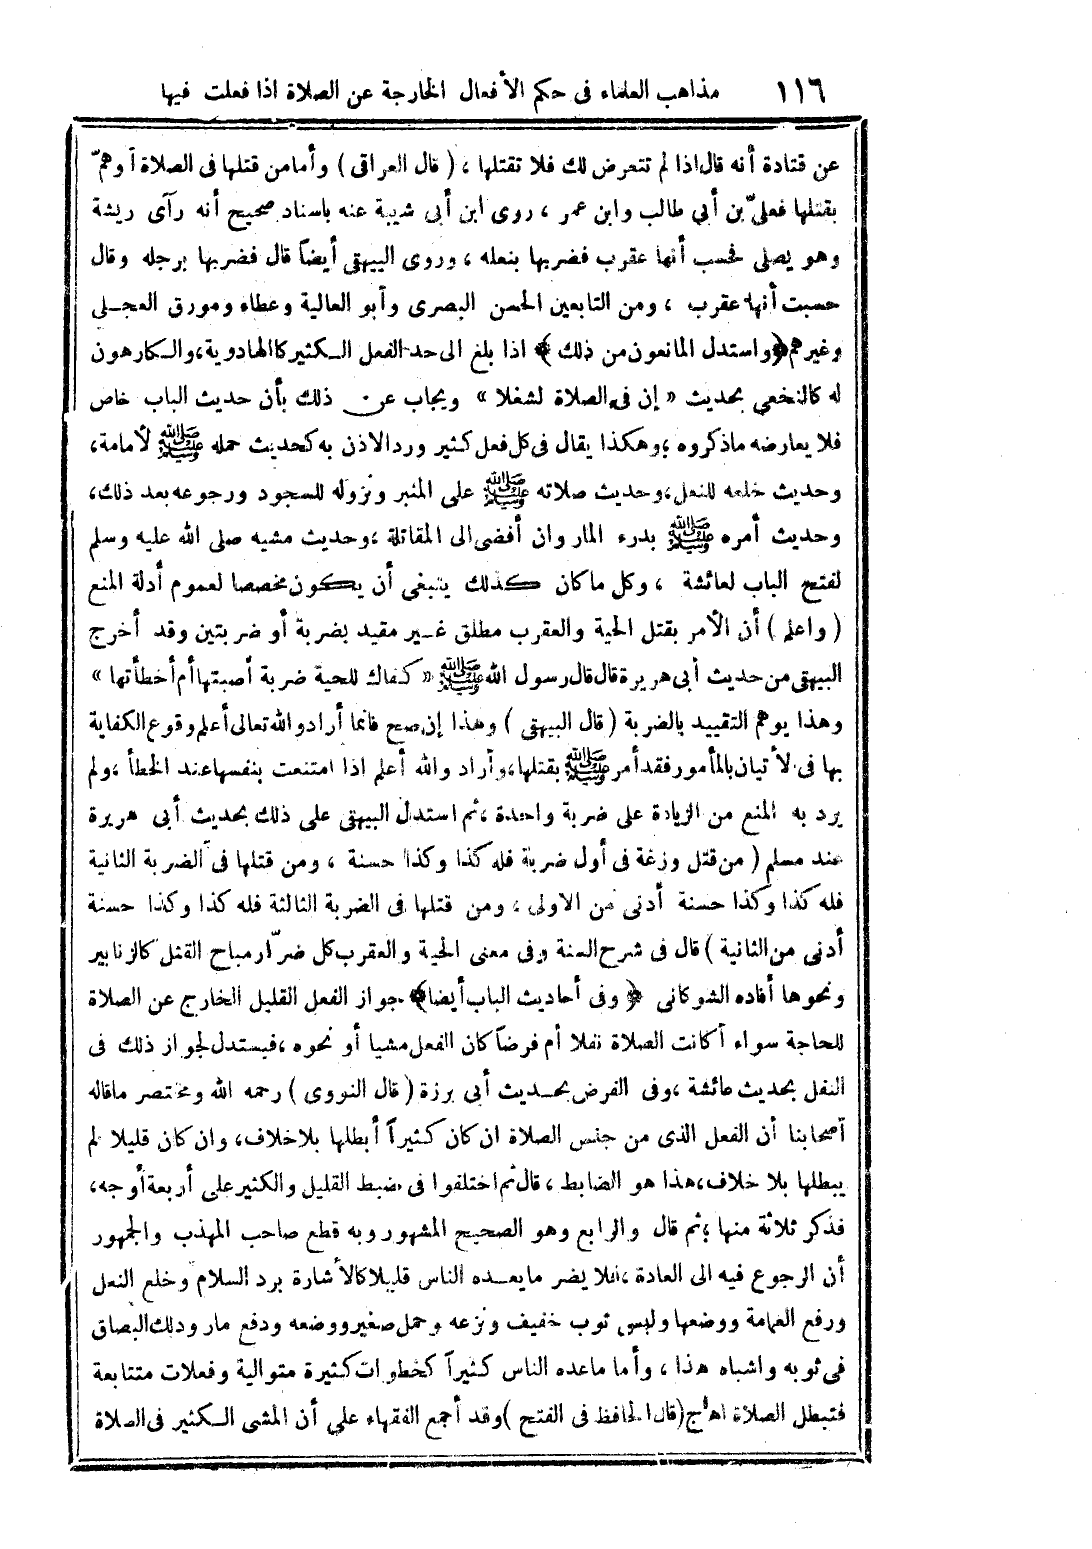 ١١٦ مذاهب العلماء فى حكم الأفعال الخارجة عن الصلاة اذا فعلت فيها
عن قتادة أنه قال اذا لم تتعرض لك فلا تقتلها ، ( قال العراقى ) وأما من قتلها فى الصلاة أو همّ
بقتلها فعلىّ بن أبي طالب وابن عمر ، روى ابن أبى شيبة عنه باسناد صحيح أنه رآى ريشة
وهو يصلى فحسب أنها عقرب فضربها بنعله ، وروى البيهقى أيضاً قال فضربها برجله وقال
حسبت أنها عقرب ، ومن التابعين الحسن البصرى وأبو العالية وعطاء ومورق العجلى
وغيرهم ﴿واستدل المانعون من ذلك ﴾ اذا بلغ الى حد الفعل الكثير كالهادوية، والكارهون
له كالنخعي بحديث « إن فى الصلاة لشغلا » ويجاب عن ذلك بأن حديث الباب خاص
فلا يعارضه ماذكروه ؛ وهكذا يقال فى كل فعل كثير ورد الاذن به كحديث حمله ﷺ لأمامة،
وحديث خلعه للنعل، وحديث صلاته ﷺ على المنبر ونزوله للسجود ورجوعه بعد ذلك،
وحديث أمره ﷺ بدرء المار وان أفضى الى المقاتلة ، وحديث مشيه صلى الله عليه وسلم
لفتح الباب لعائشة ، وكل ما كان كذلك ينبغى أن يكون مخصصا لعموم أدلة المنع
( واعلم ) أن الأمر بقتل الحية والعقرب مطلق غير مقيد بضربة أو ضربتين وقد أخرج
البيهقى من حديث أبى هريرة قال قال رسول الله ﷺ « كفاك للحية ضربة أصبتها أم أخطأتها »
وهذا يوهم التقييد بالضربة ( قال البيهقى ) وهذا إن صح فانما أراد والله تعالى أعلم وقوع الكفاية
بها فى لأتيان بالمأمور فقد أمر ﷺ بقتلها، وأراد والله أعلم اذا امتنعت بنفسها عند الخطأ ، ولم
يرد به المنع من الزيادة على ضربة واحدة ، ثم استدل البيهقى على ذلك بحديث أبى هريرة
عند مسلم ( من قتل وزغة فى أول ضربة فله كذا وكذا حسنة ، ومن قتلها فى الضربة الثانية
فله كذا وكذا حسنة أدنى من الاولى ، ومن قتلها فى الضربة الثالثة فله كذا وكذا حسنة
أدنى من الثانية ) قال فى شرح السنة وفى معنى الحية والعقرب كل ضرّار مباح القتل كالزنابير
ونحوها أفاده الشوكانى ﴿ وفى أحاديث الباب أيضا﴾ جواز الفعل القليل الخارج عن الصلاة
للحاجة سواء أكانت الصلاة نفلا أم فرضاً كان الفعل مشيا أو نحوه ، فيستدل لجواز ذلك فى
النفل بحديث عائشة ، وفى الفرض بحديث أبى برزة ( قال النووى ) رحمه الله ومختصر ماقاله
أصحابنا أن الفعل الذى من جنس الصلاة ان كان كثيراً أبطلها بلا خلاف، وان كان قليلا لم
يبطلها بلا خلاف، هذا هو الضابط ، قال ثم اختلفوا فى ضبط القليل والكثير على أربعة أوجه،
فذكر ثلاثة منها ؛ ثم قال والرابع وهو الصحيح المشهور وبه قطع صاحب المهذب والجمهور
أن الرجوع فيه الى العادة ، فلا يضر مايعده الناس قليلا كالأشارة برد السلام وخلع النعل
ورفع العمامة ووضعها ولبس ثوب خفيف ونزعه وحمل صغير ووضعه ودفع مار ودلك البصاق
فى ثوبه واشباه هذا ، وأما ماعده الناس كثيراً كخطوات كثيرة متوالية وفعلات متتابعة
فتبطل الصلاة اهج (قال الحافظ فى الفتح ) وقد أجمع الفقهاء على أن المشى الكثير فى الصلاة